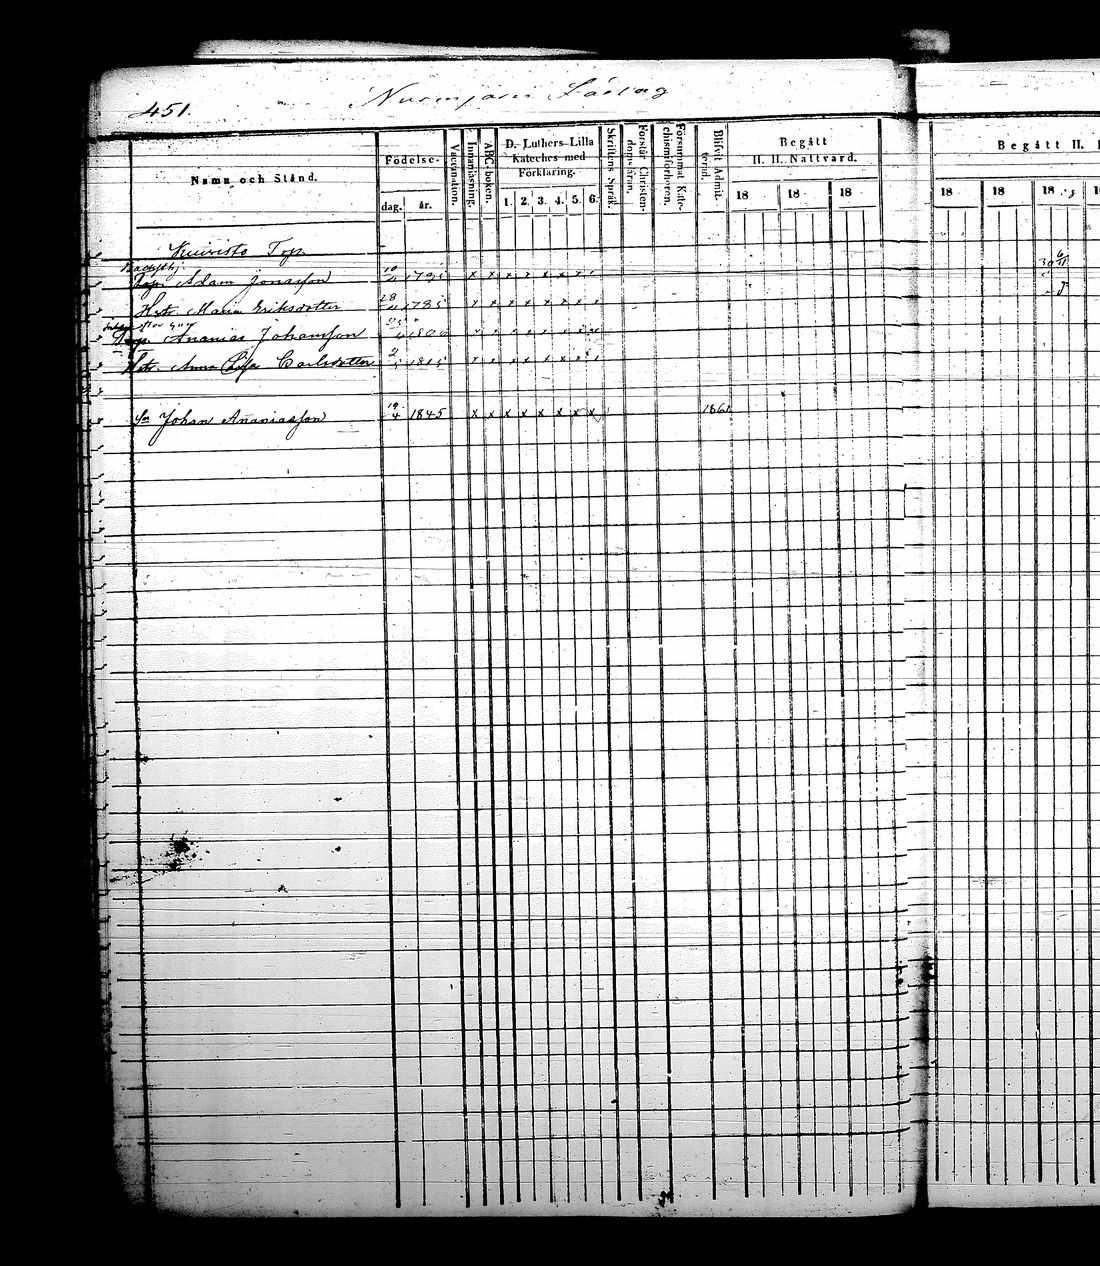 451.
Nurmijärvi Låstag
Namn och Stånd.
Födelse-
dag. år.
Vaccination.
Innanläsning.
ABC-boken.
D. Luthers Lilla
Kateches med
Förklaring.
1. 2. 3. 4. 5. 6.
Skriftens Språk.
Förstår Christen-
domsläran.
Försummat Kate-
chismiförhören.
Blifvit Admit-
terad.
Begått
H. H. Nattvard.
18 18 18
Begått H.
18 18 18 18
Kuivisto Top.
Adam Jonasson 10 1795 x x x x x x x
Hustr. Maria Eriksdotter 28 1785 x x x x x x x
Ananias Johansson 1806 x x x x x x
Hstr. Anna Lisa Carlsdotter 2 1815 x x x x x x
Sn Johan Ananiasson 19/4 1845 x x x x x x x x 1861